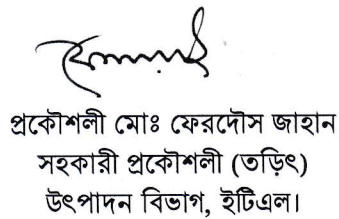 প্রকৌশলী মোঃ ফেরদৌস জাহান
সহকারী প্রকৌশলী (তড়িৎ)
উৎপাদন বিভাগ, ইটিএল।